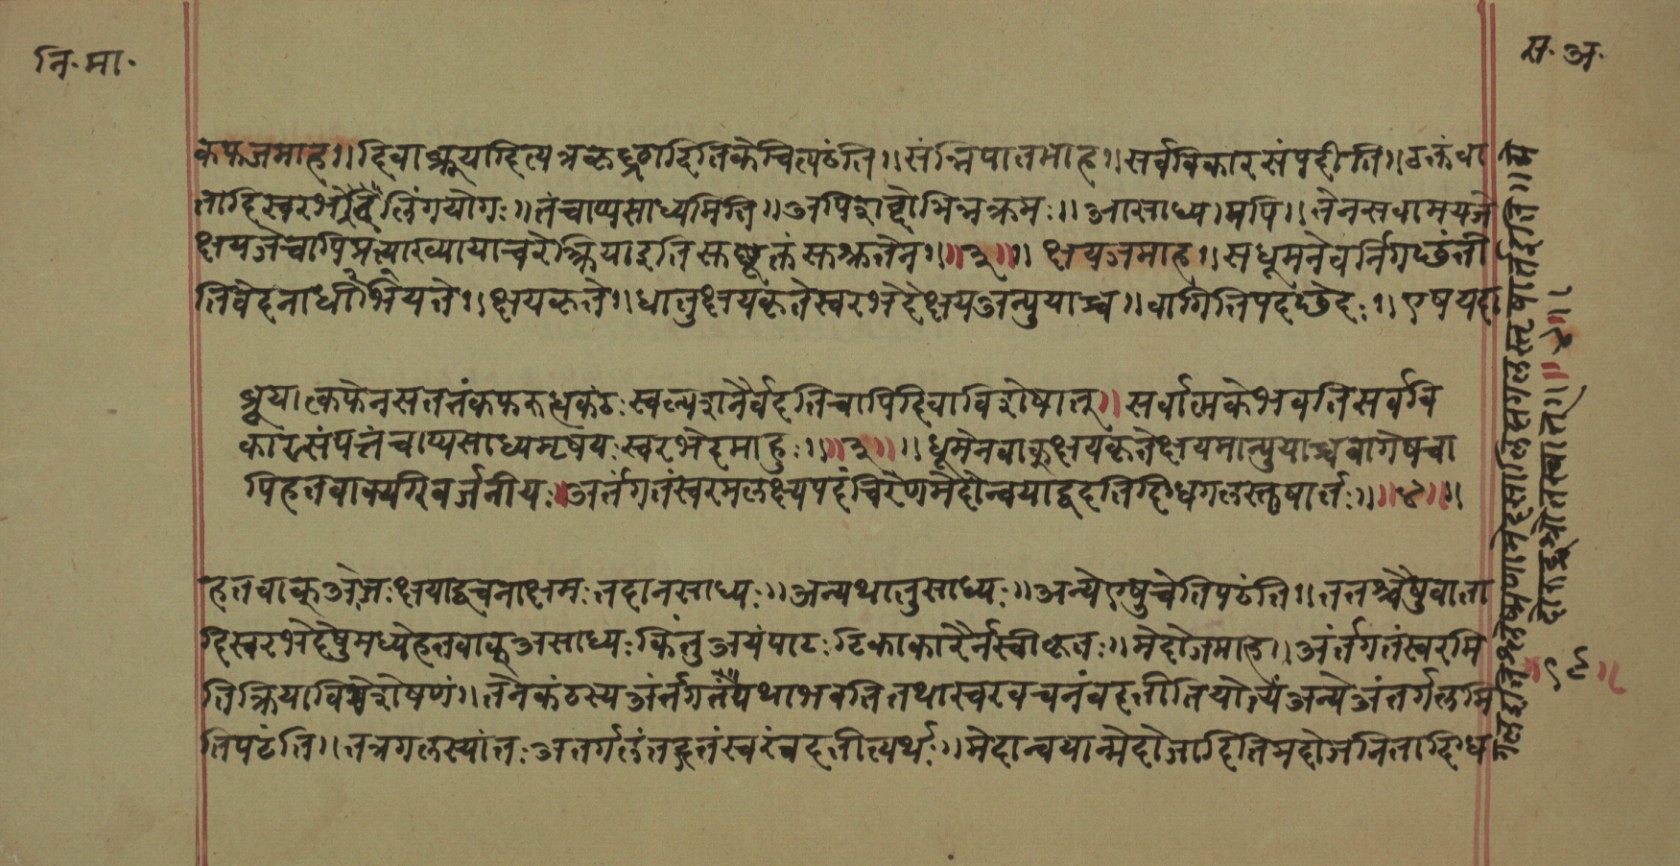 नि. मा.
स. अ.
कफजमाह ॥ दिवाब्रूयादित्यत्र कृछ्रादितिकेचित्पठंति ॥ संन्निपातमाह ॥ सर्वविकारसंपदीति ॥ उक्तंवा
तादिस्वरभेदै र्लिंगयोगः ॥ तंचाप्यसाध्यमिति ॥ अपिशब्दोभिन्नक्रमः ॥ आसाध्य।मपि ॥ तेनसवामयजे
क्षयजेचापिप्रत्याख्यायाचरेत्क्रियाइति सुश्रुतेन ॥ ॥३॥ ॥ क्षयजमाह ॥ सधूमनेवर्निगछंती
तिवेदनार्धो ॥ क्षयकृते ॥ धातुक्षयकृतेस्वरभेदेक्षयंअप्नुयाच्च ॥ वागितिपदछेदः ॥ एषयदा
ब्रूयात्कफेनसततंकफरुद्धकंठः स्वल्पंशनैर्वदतिचापिदिवाविशेषात् । सर्वात्मकेभवतिसर्ववि
कारसंपत्तंचाप्यसाध्यमृषयः स्वरभेदमाहुः ॥ ॥३॥ ॥ धूमेनवाक्क्षयकृतेक्षयमाप्नुयाच्चवागेषचा
पिहतवाक्यरिवर्जनीयः । अर्तंगतंस्वरमलक्ष्यपदंचिरेणमेदोन्वयाद्वदतिदिग्धगलस्तृषार्तः ॥ ॥४॥ ॥
हतवाक् अेज क्षयाद्वचनाक्षमः तदानसाध्यः ॥ अन्यथातुसाध्यः ॥ अन्येएषुचेतिपठंति ॥ ततश्चैषुवाता
दिस्वरभेदेषुमध्येहतवाक् असाध्यः किंतुअयंपाठः टिकाकारैर्नस्वीकृतः ॥ मेदोजमाह ॥ अंर्तगतंस्वरमि
तिक्रियाविशेषणं ॥ तेनकंठस्य अंर्तगतंयथाभवतितथास्वरवचनंवदतीतियोज्यं अन्येअंतर्गलमि
तिपठंति ॥ तत्रगलस्यांतः अतर्गलंतद्गतंस्वरंवदतीत्यर्थः ॥ मेदान्वयान्मेदोजादितिमेदोजनितादिग्ध
॥९६॥